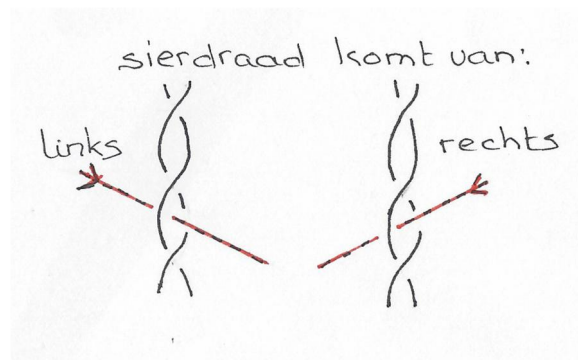 sierdraad komt van:
links
rechts